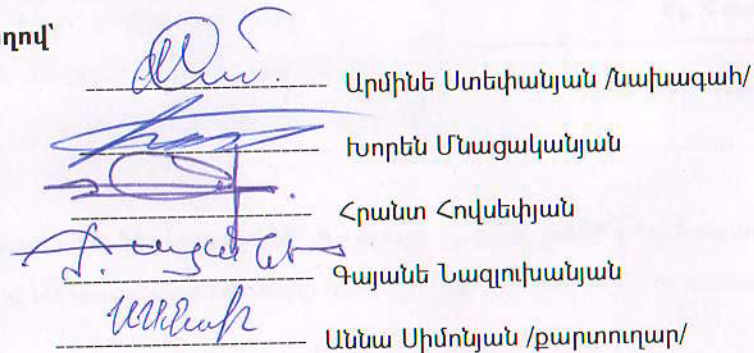 ղով՝
Արմինե Ստեփանյան /նախագահ/
Խորեն Մնացականյան
Հրանտ Հովսեփյան
Գայանե Նազլուխանյան
Աննա Սիմոնյան /քարտուղար/